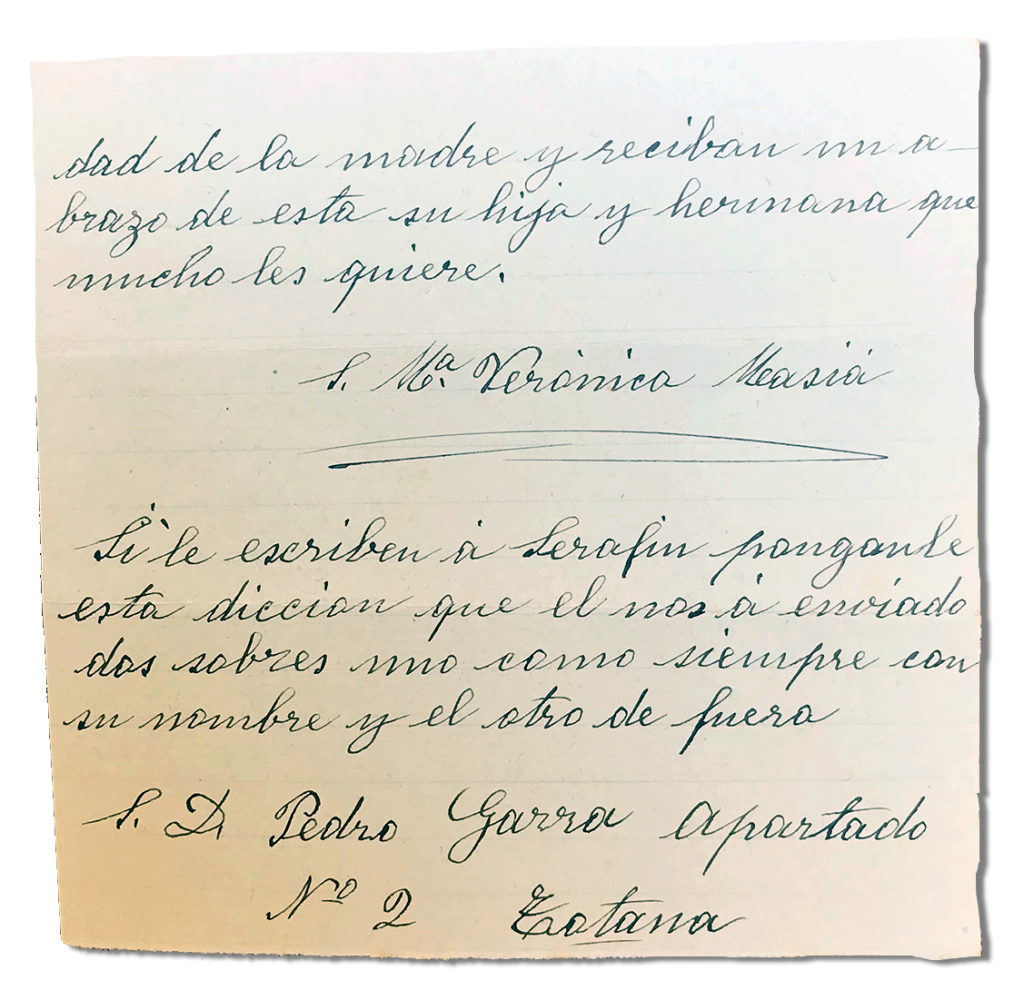 dad de la madre y reciban un a-
brazo de esta su hija y hermana que
mucho les quiere.
S. Mª. Verónica Masiá
Si le escriben á Serafin ponganle
esta diccion que el nos á enviado
dos sobres uno como siempre con
su nombre y el otro de fuera
S. D. Pedro Garra Apartado
Nº 2 Totana